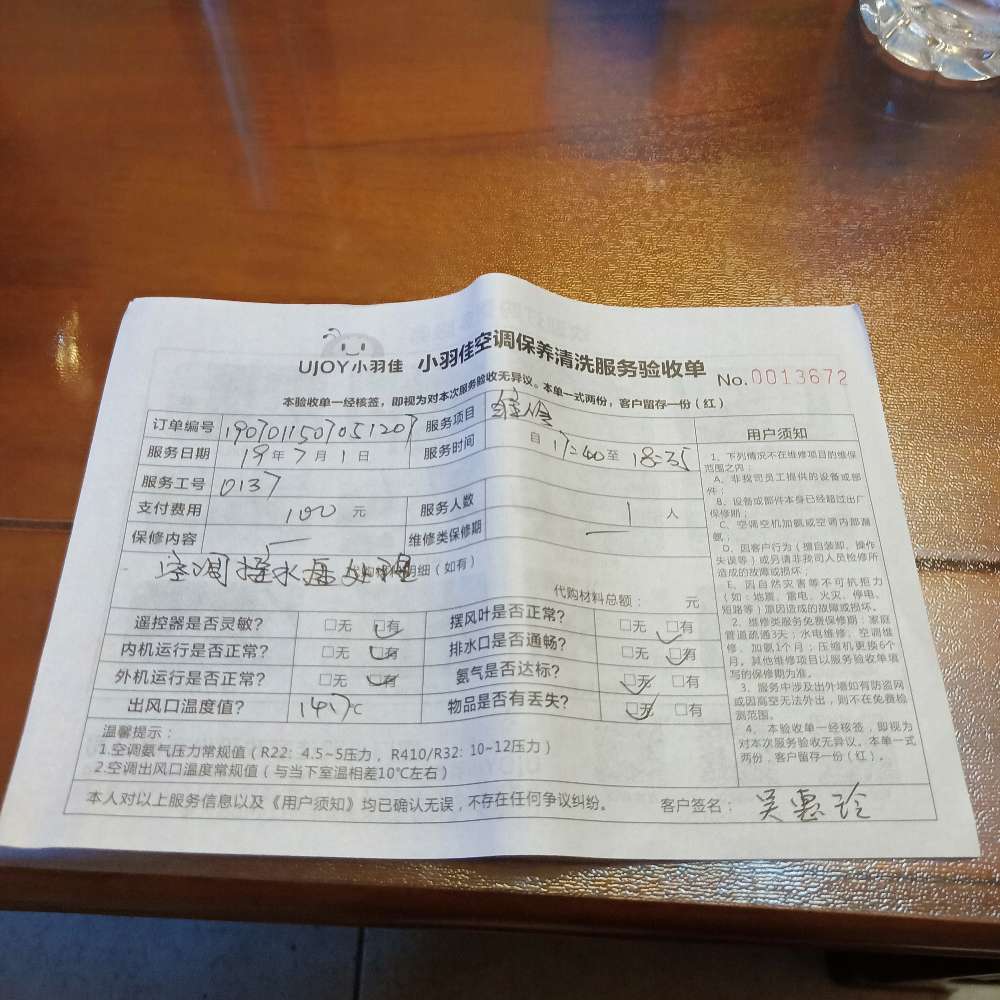 UJOY小羽佳 小羽佳空调保养清洗服务验收单 No.0013672
本验收单一经核签，即视为对本次服务验收无异议。本单一式两份，客户留存一份（红）
订单编号 190701150705120 服务项目
服务日期 19年7月1日 服务时间 自17:40至18:35
服务工号 0137
支付费用 100元 服务人数 1人
保修内容 — 维修类保修期 —
空调接水盘处理 明细（如有）
代购材料总额： 元
遥控器是否灵敏？ □无 ☑有 摆风叶是否正常？ □无 ☑有
内机运行是否正常？ □无 ☑有 排水口是否通畅？ □无 ☑有
外机运行是否正常？ □无 ☑有 氨气是否达标？ ☑无 □有
出风口温度值？ 14.7℃ 物品是否有丢失？ ☑无 □有
温馨提示：
1.空调氨气压力常规值（R22: 4.5~5压力，R410/R32: 10~12压力）
2.空调出风口温度常规值（与当下室温相差10℃左右）
本人对以上服务信息以及《用户须知》均已确认无误，不存在任何争议纠纷。 客户签名：吴惠玲
用户须知
1、下列情况不在维修项目的维保
范围之内：
A、非我司员工提供的设备或部
件；
B、设备或部件本身已经超过出厂
保修期；
C、空调空机加氨或空调内部漏
氨；
D、因客户行为（擅自装卸、操作
失误等）或另请非我司人员检修所
造成的故障或损坏；
E、因自然灾害等不可抗拒力
（如：地震、雷电、火灾、停电、
短路等）原因造成的故障或损坏。
2、维修类服务免费保修期：家庭
管道疏通3天；水电维修、空调维
修、加氨1个月；压缩机更换6个
月，其他维修项目以服务验收单填
写的保修期为准。
3、服务中涉及出外墙如有防盗网
或因高空无法外出，则不在免费检
测范围。
4、本验收单一经核签，即视为
对本次服务验收无异议。本单一式
两份，客户留存一份（红）。